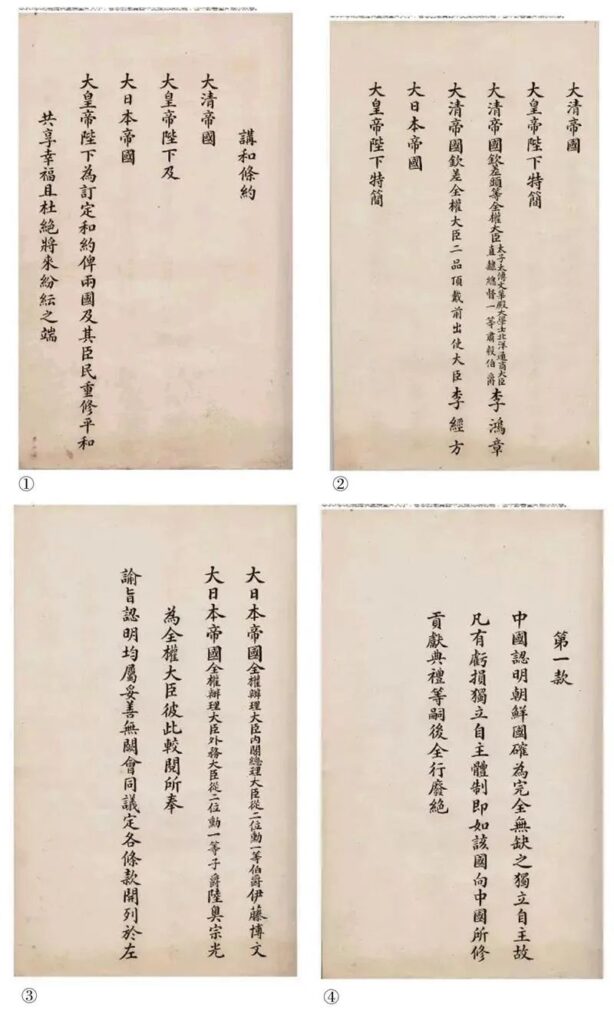 講和條約
大清帝國
大皇帝陛下及
大日本帝國
大皇帝陛下為訂定和約俾兩國及其臣民重修平和
共享幸福且杜絕將來紛紜之端
①
大清帝國
大皇帝陛下特簡
大清帝國欽差頭等全權大臣太子太傅文華殿大學士北洋通商大臣直隸總督一等肅毅伯爵李鴻章
大清帝國欽差全權大臣二品頂戴前出使大臣李經方
大日本帝國
大皇帝陛下特簡
②
大日本帝國全權辦理大臣內閣總理大臣從二位勳一等伯爵伊藤博文
大日本帝國全權辦理大臣外務大臣從二位勳一等子爵陸奧宗光
為全權大臣彼此較閱所奉
諭旨認明均屬妥善無闕會同議定各條款開列於左
③
第一款
中國認明朝鮮國確為完全無缺之獨立自主故
凡有虧損獨立自主體制即如該國向中國所修
貢獻典禮等嗣後全行廢絕
④